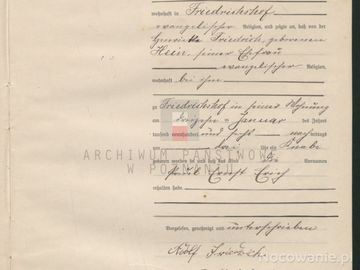 wohnhaft in Friedrichshof
evangelischer Religion, und zeigte an, daß von der
Friedrich, geborenen
Hein, seiner Ehefrau
evangelischer Religion,
wohnhaft bei ihm
zu Friedrichshof in seiner Wohnung
am dreizehnten Januar des Jahres
tausend neunhundert und sechs nachmittags
um drei Uhr ein Knabe
geboren worden sei und daß das Kind die Vornamen
Ernst Erich
erhalten habe.
Vorgelesen, genehmigt und unterschrieben
Adolf Friedrich
ARCHIWUM PAŃSTWOWE
W POZNANIU
genealogawanie.pl